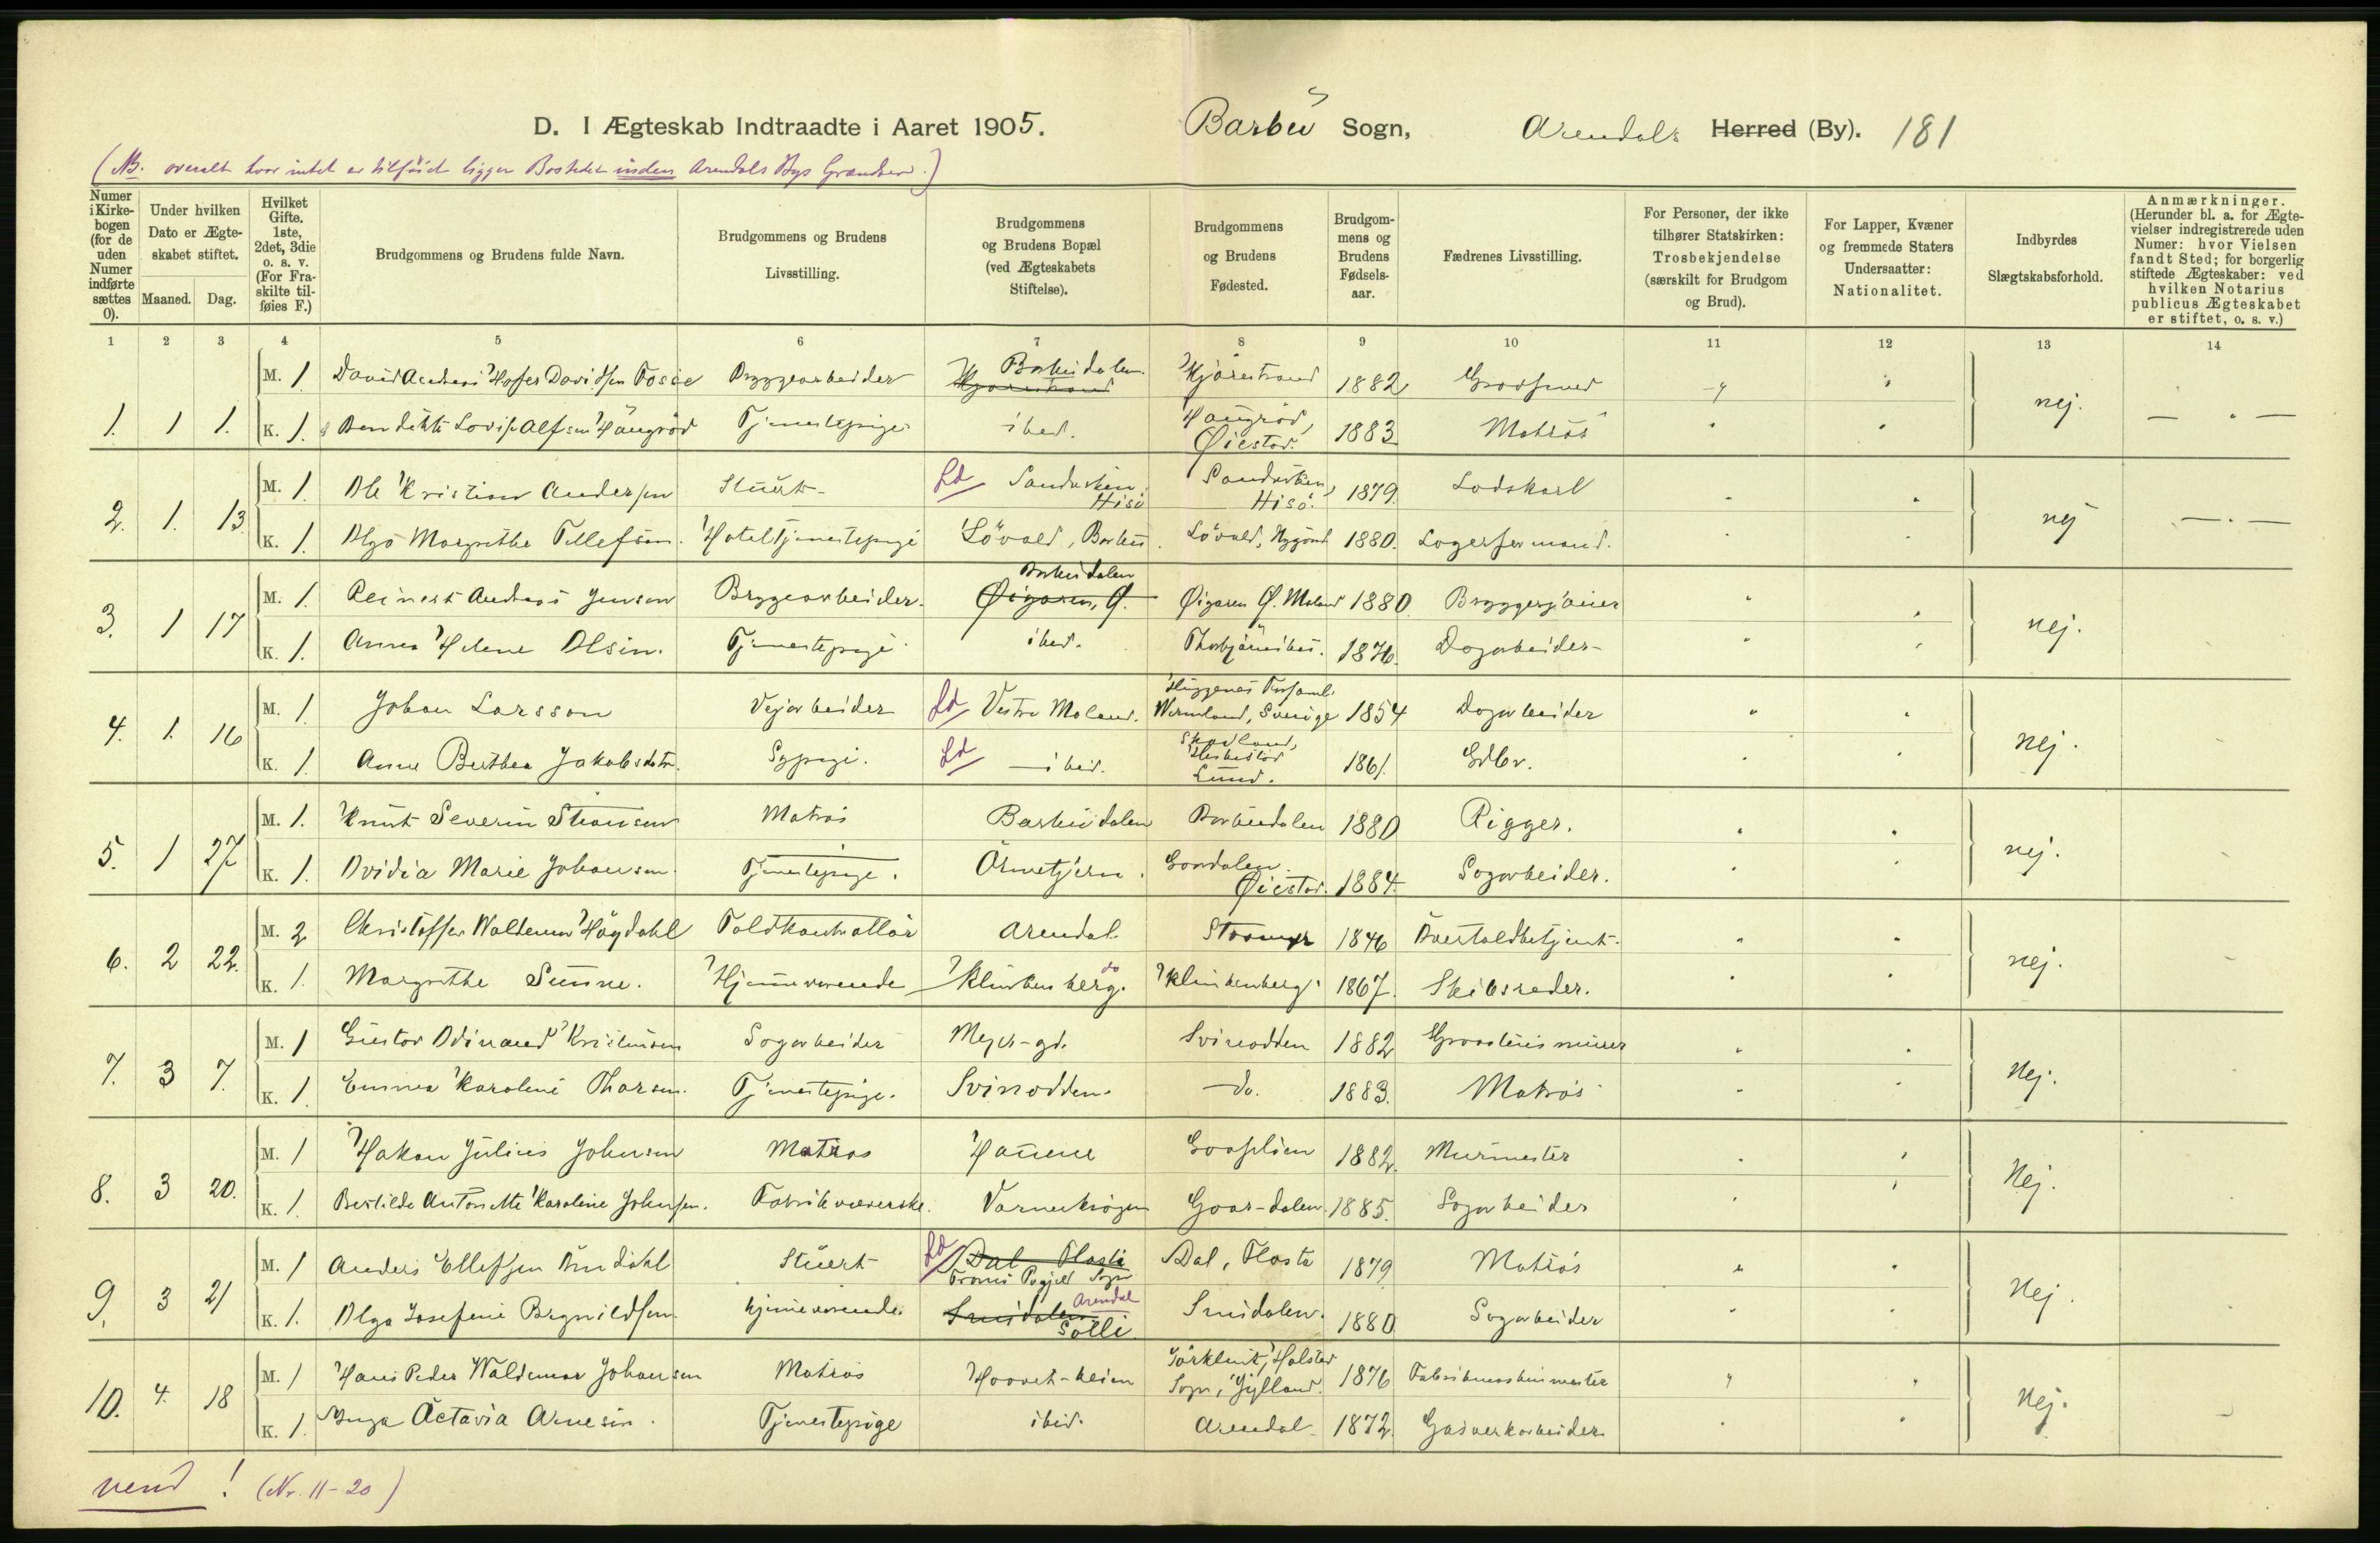 D. I Ægteskab Indtraadte i Aaret 1905. Barbu Sogn, Arendals Herred (By). 181
(NB. overalt hvor intet er tilføiet ligger Bostedet inden Arendals Bys Grændser.)
Numer i Kirkebogen (for de uden Numer indførte sættes 0).
Under hvilken Dato er Ægteskabet stiftet. Maaned. Dag.
Hvilket Gifte. 1ste, 2det, 3die o. s. v. (For Fraskilte tilføies F.)
Brudgommens og Brudens fulde Navn.
Brudgommens og Brudens Livsstilling.
Brudgommens og Brudens Bopæl (ved Ægteskabets Stiftelse).
Brudgommens og Brudens Fødested.
Brudgommens og Brudens Fødselsaar.
Fædrenes Livsstilling.
For Personer, der ikke tilhører Statskirken: Trosbekjendelse (særskilt for Brudgom og Brud).
For Lapper, Kvæner og fremmede Staters Undersaatter: Nationalitet.
Indbyrdes Slægtskabsforhold.
Anmærkninger. (Herunder bl. a. for Ægtevielser indregistrerede uden Numer: hvor Vielsen fandt Sted; for borgerlig stiftede Ægteskaber: ved hvilken Notarius publicus Ægteskabet er stiftet, o. s. v.)
1 2 3 4 5 6 7 8 9 10 11 12 13 14
1. 1 1. M. 1 David Andreas Davidsen Fosse Bryggearbeider Barbudalen 1882 Grovsmed nej.
K. 1. Lovise Alfsen Haugrød Tjenestepige ibid. Haugrød, Øiestad. 1883 Matros
2. 1. 13. M. 1. Ole Kristian Andersen Stuert Ld Sandviken Hisø Sandviken, Hisø. 1879. Lodskarl nej
K. 1. Olga Margrethe Tellefsen. Hoteltjenestepige Løvold, Barbu. Løvold, 1880. Lagerformand.
3. 1 17 M. 1. Reinert Andreas Jensen Bryggearbeider. Barbudalen Øigaren, Ø. Øigaren Ø. Moland 1880 nej.
K. 1. Anna Helene Olsen. Tjenestepige ibid. 1876. Dagarbeider
4. 1. 16 M. 1. Johan Larsson Vejarbeider Ld Vestre Moland. Wermland, Sverige 1854 Dagarbeider nej.
K. 1. Anne Berthea Jakobsdtr. Sypige. Ld ibid. Lund. 1861. Gdbr.
5. 1 27 M. 1. Knut Severin Matros Barbudalen Barbudalen 1880 Rigger. nej.
K. 1. Ovidia Marie Johansen. Tjenestepige. Øiestad. 1884 Sagarbeider.
6. 2 22. M. 2 Christoffer Waldemar Høydahl Toldkontrollør Arendal. 1846 Overtoldbetjent. nej.
K. 1. Margrethe Hjemmeværende Klinkenberg. do Klinkenberg. 1867. Skibsreder.
7. 3 7. M. 1 Gustav Odinand Sagarbeider Svinodden 1882 nej.
K. 1 Emma Karoline Thorsen. Tjenestepige. Svinodden. do. 1883. Matros
8. 3 20. M. 1 Hakon Julius Johnsen Matros Havene 1882. Murmester Nej.
K. 1. Bertilde Antonette Karoline Johnsen. Fabrikvæverske. 1885. Sagarbeider
9. 3 21 M. 1 Anders Ellefsen Omdahl Stuert Ld Dal Flosta Sogn Dal, Flosta 1879 Matros Nej.
K. 1. Olga Josefine Brynildsen. hjemmeværende. Smidalen Arendal Solli Smidalen. 1880 Sagarbeider
10. 4. 18 M. 1 Hans Peder Waldemar Johansen Matros Sogn, Jylland. 1876 Nej.
K. 1. Inga Octavia Arnesen. Tjenestepige ibid. Arendal 1872. Gasverkarbeider
vend! (Nr. 11-20)